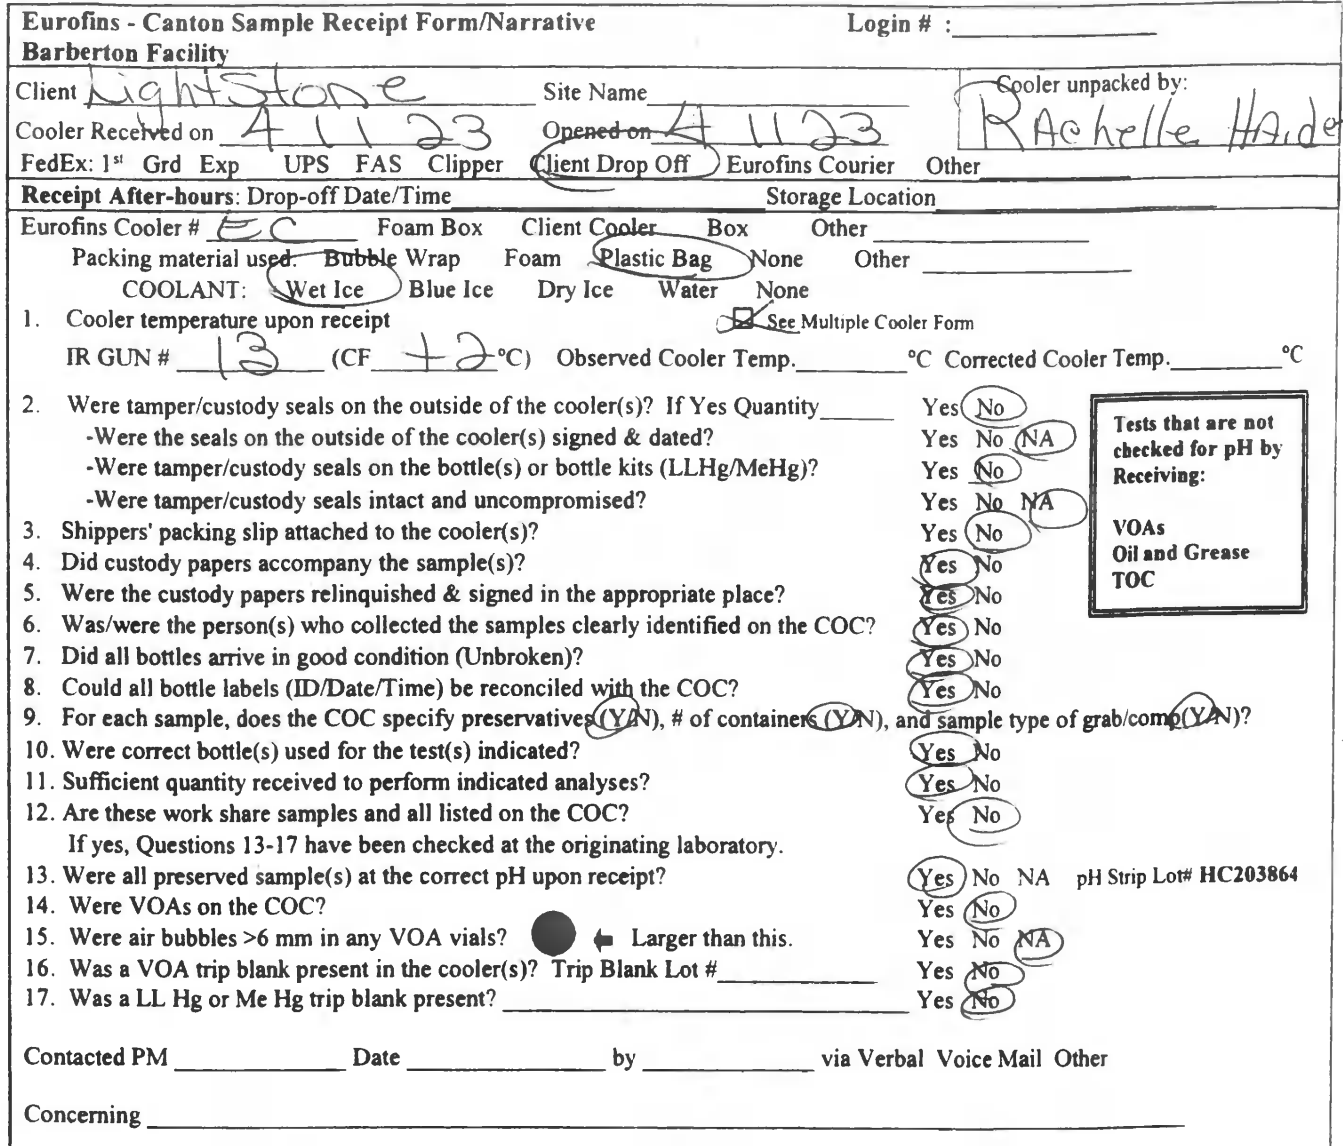 Eurofins - Canton Sample Receipt Form/Narrative Login # :
Barberton Facility
Client LightStone Site Name Cooler unpacked by:
Cooler Received on 4 11 23 Opened on 4 11 23 RAchelle HAide
FedEx: 1st Grd Exp UPS FAS Clipper Client Drop Off Eurofins Courier Other
Receipt After-hours: Drop-off Date/Time Storage Location
Eurofins Cooler # EC Foam Box Client Cooler Box Other
Packing material used: Bubble Wrap Foam Plastic Bag None Other
COOLANT: Wet Ice Blue Ice Dry Ice Water None
1. Cooler temperature upon receipt See Multiple Cooler Form
IR GUN # 13 (CF +2 °C) Observed Cooler Temp. °C Corrected Cooler Temp. °C
2. Were tamper/custody seals on the outside of the cooler(s)? If Yes Quantity Yes No
-Were the seals on the outside of the cooler(s) signed & dated? Yes No NA
-Were tamper/custody seals on the bottle(s) or bottle kits (LLHg/MeHg)? Yes No
-Were tamper/custody seals intact and uncompromised? Yes No NA
3. Shippers' packing slip attached to the cooler(s)? Yes No
4. Did custody papers accompany the sample(s)? Yes No
5. Were the custody papers relinquished & signed in the appropriate place? Yes No
6. Was/were the person(s) who collected the samples clearly identified on the COC? Yes No
7. Did all bottles arrive in good condition (Unbroken)? Yes No
8. Could all bottle labels (ID/Date/Time) be reconciled with the COC? Yes No
Tests that are not
checked for pH by
Receiving:
VOAs
Oil and Grease
TOC
9. For each sample, does the COC specify preservatives (Y/N), # of containers (Y/N), and sample type of grab/comp(Y/N)?
10. Were correct bottle(s) used for the test(s) indicated? Yes No
11. Sufficient quantity received to perform indicated analyses? Yes No
12. Are these work share samples and all listed on the COC? Yes No
If yes, Questions 13-17 have been checked at the originating laboratory.
13. Were all preserved sample(s) at the correct pH upon receipt? Yes No NA pH Strip Lot# HC203864
14. Were VOAs on the COC? Yes No
15. Were air bubbles >6 mm in any VOA vials? Larger than this. Yes No NA
16. Was a VOA trip blank present in the cooler(s)? Trip Blank Lot # Yes No
17. Was a LL Hg or Me Hg trip blank present? Yes No
Contacted PM Date by via Verbal Voice Mail Other
Concerning